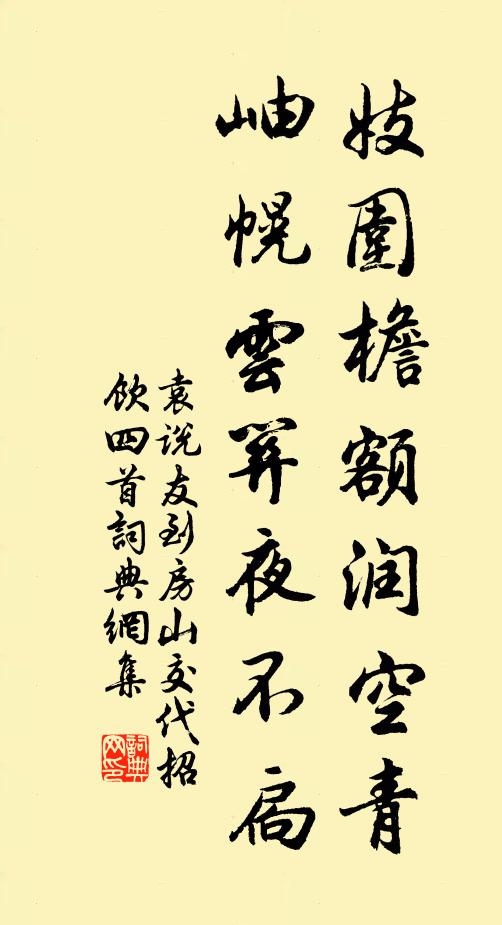 妓圍檐額润空青
岫幌雲筓夜不扃
袁说友到房山交代招
飲四首詞典網集
詞典
网印